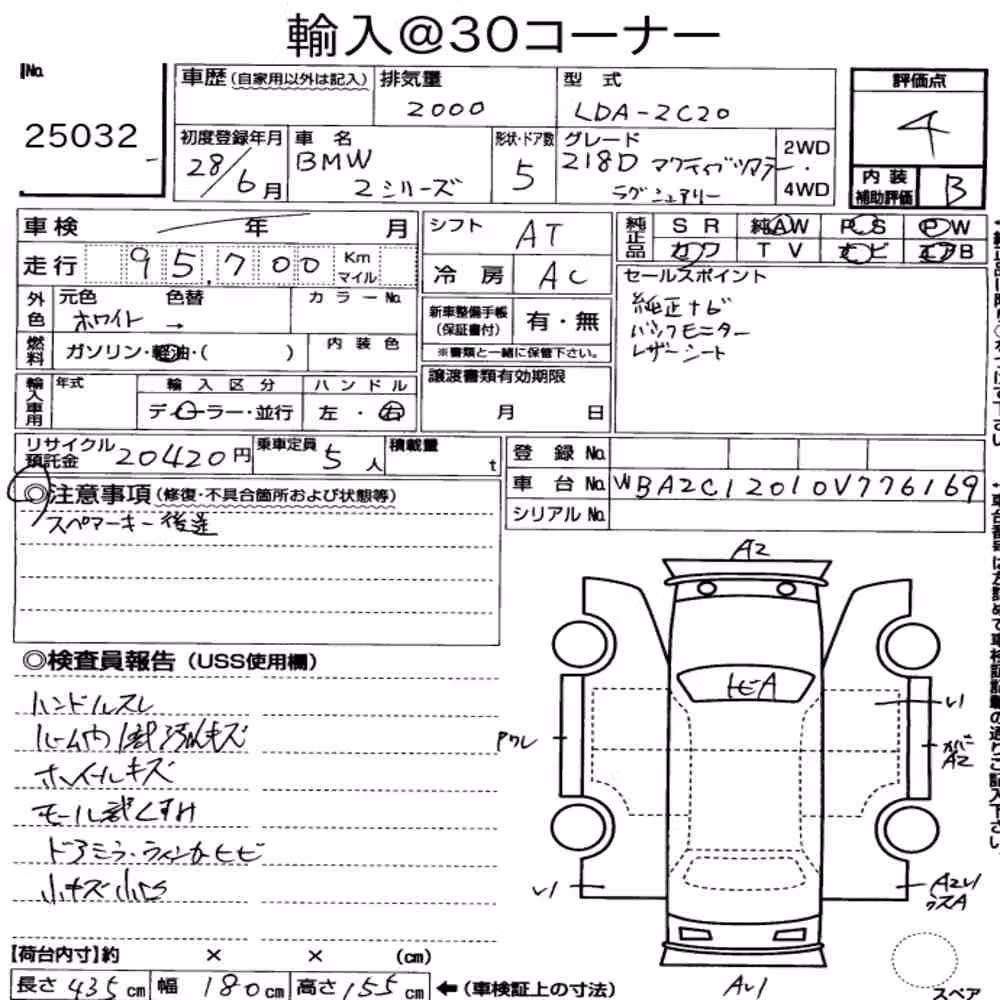 輸入@30コーナー
No.
25032
車歴(自家用以外は記入) 排気量 型 式
2000 LDA-2C20
初度登録年月 車 名 形状・ドア数 グレード
28/6月 BMW 2シリーズ 5 218D アクティブツアラー ラグジュアリー
2WD ・ 4WD
評価点
4
内装補助評価 B
車検 年 月
走行 95,700 Km マイル
外色 元色 色替 カラーNo.
ホワイト →
燃料 ガソリン・軽油・( ) 内装色
輸入車用 年式 輸入区分 ハンドル
ディーラー・並行 左・右
シフト AT
冷房 AC
新車整備手帳(保証書付) 有・無
※書類と一緒に保管下さい。
譲渡書類有効期限
月 日
純正品 SR 純AW PS PW
カワ TV ナビ エアB
セールスポイント
純正ナビ
バックモニター
レザーシート
リサイクル預託金 20420円 乗車定員 5人 積載量 t
登録No.
車台No. WBA2C12010V776169
シリアルNo.
◎注意事項(修復・不具合箇所および状態等)
スペアキー後送
◎検査員報告(USS使用欄)
ハンドルスレ
ルーム内1部汚れキズ
ホイールキズ
モール部くすみ
ドアミラーウィンカヒビ
小キズ小凹
A2
トビA
アワレ
レ1
カバーA2
レ1
A2レ1
ウスA
Aレ1
スペア
【荷台内寸】約 × × (cm)
長さ 435cm 幅 180cm 高さ 155cm ←(車検証上の寸法)